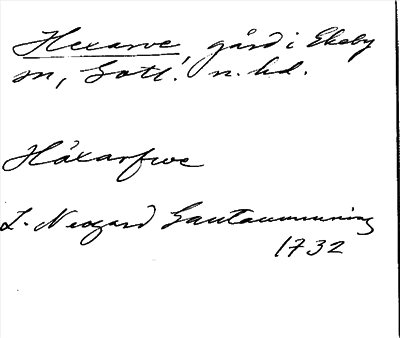 Hexarve, gård i Ekeby
sn, Gotl. n. hd.
Håxarfwe
L. Neogard Gautaumminning
1732